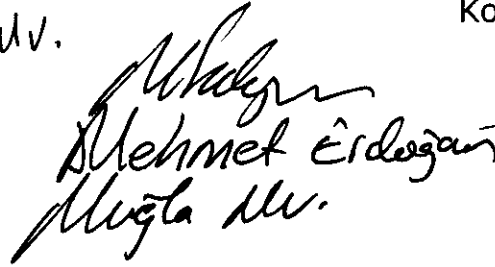 Mv.
Ko
Mehmet Erdoğan
Muğla Mv.